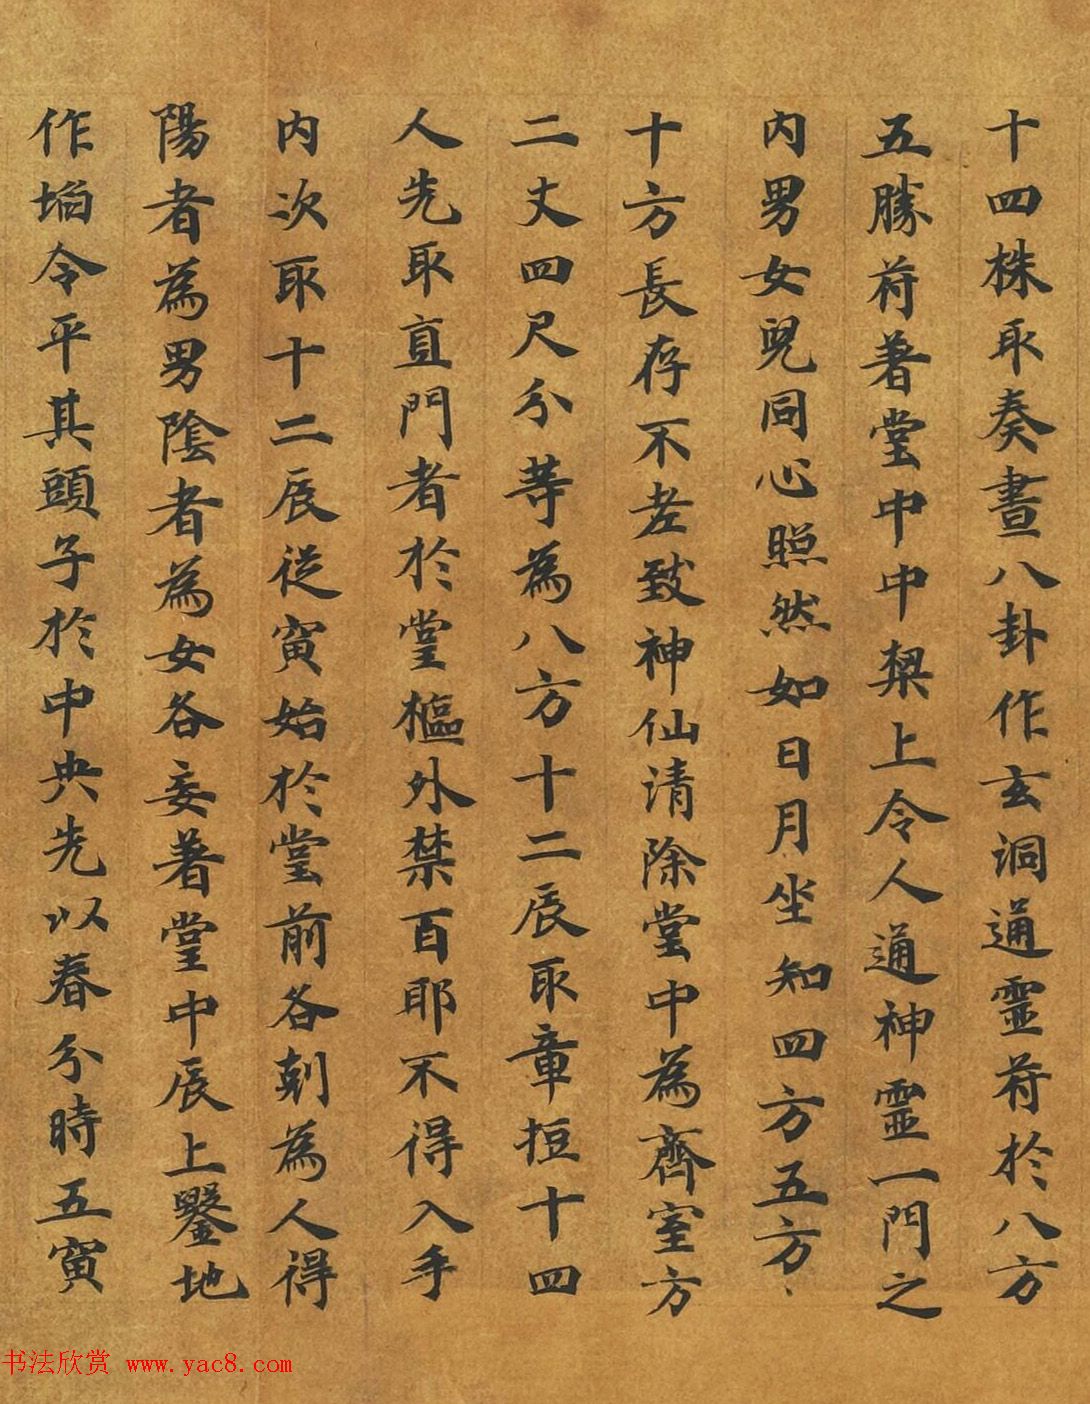 十四株取奏晝八卦作玄洞通靈苻於八方
五勝苻著堂中中樑上令人通神靈一門之
内男女兒同心照然如日月坐知四方五方
十方長存不老致神仙清除堂中為齋室方
二丈四尺分等為八方十二辰取章拒十四
人先取直門者於堂樞外禁百耶不得入手
内次取十二辰從寅始於堂前各刻為人得
陽者為男陰者為女各妾著堂中辰上鑿地
作埳令平其頭子於中央先以春分時五寅
书法欣赏 www.yac8.com